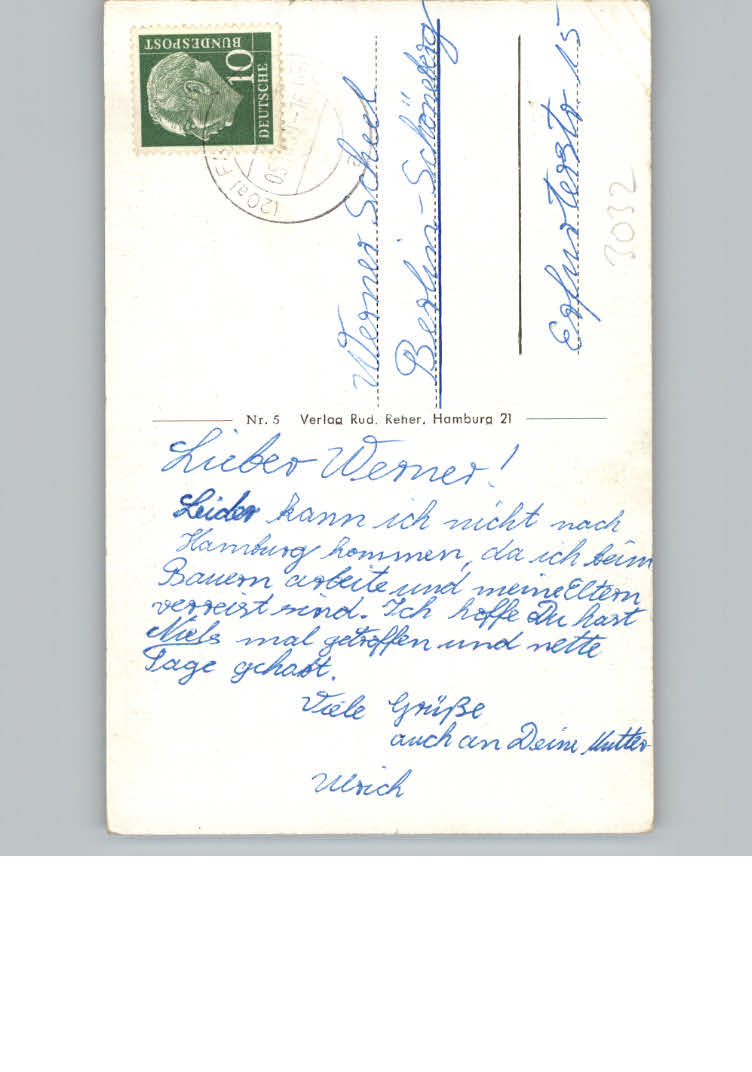 DEUTSCHE
BUNDESPOST
10
(20a)
05
Werner Scheel
Berlin-Schöneberg
Erfurterstr 15
3032
Nr. 5 Verlag Rud. Reher, Hamburg 21
Lieber Werner!
Leider kann ich nicht nach
Hamburg kommen, da ich beim
Bauern arbeite und meine Eltern
verreist sind. Ich hoffe Du hast
Niels mal getroffen und nette
Tage gehabt.
Viele Grüße
auch an Deine Mutter
Ulrich